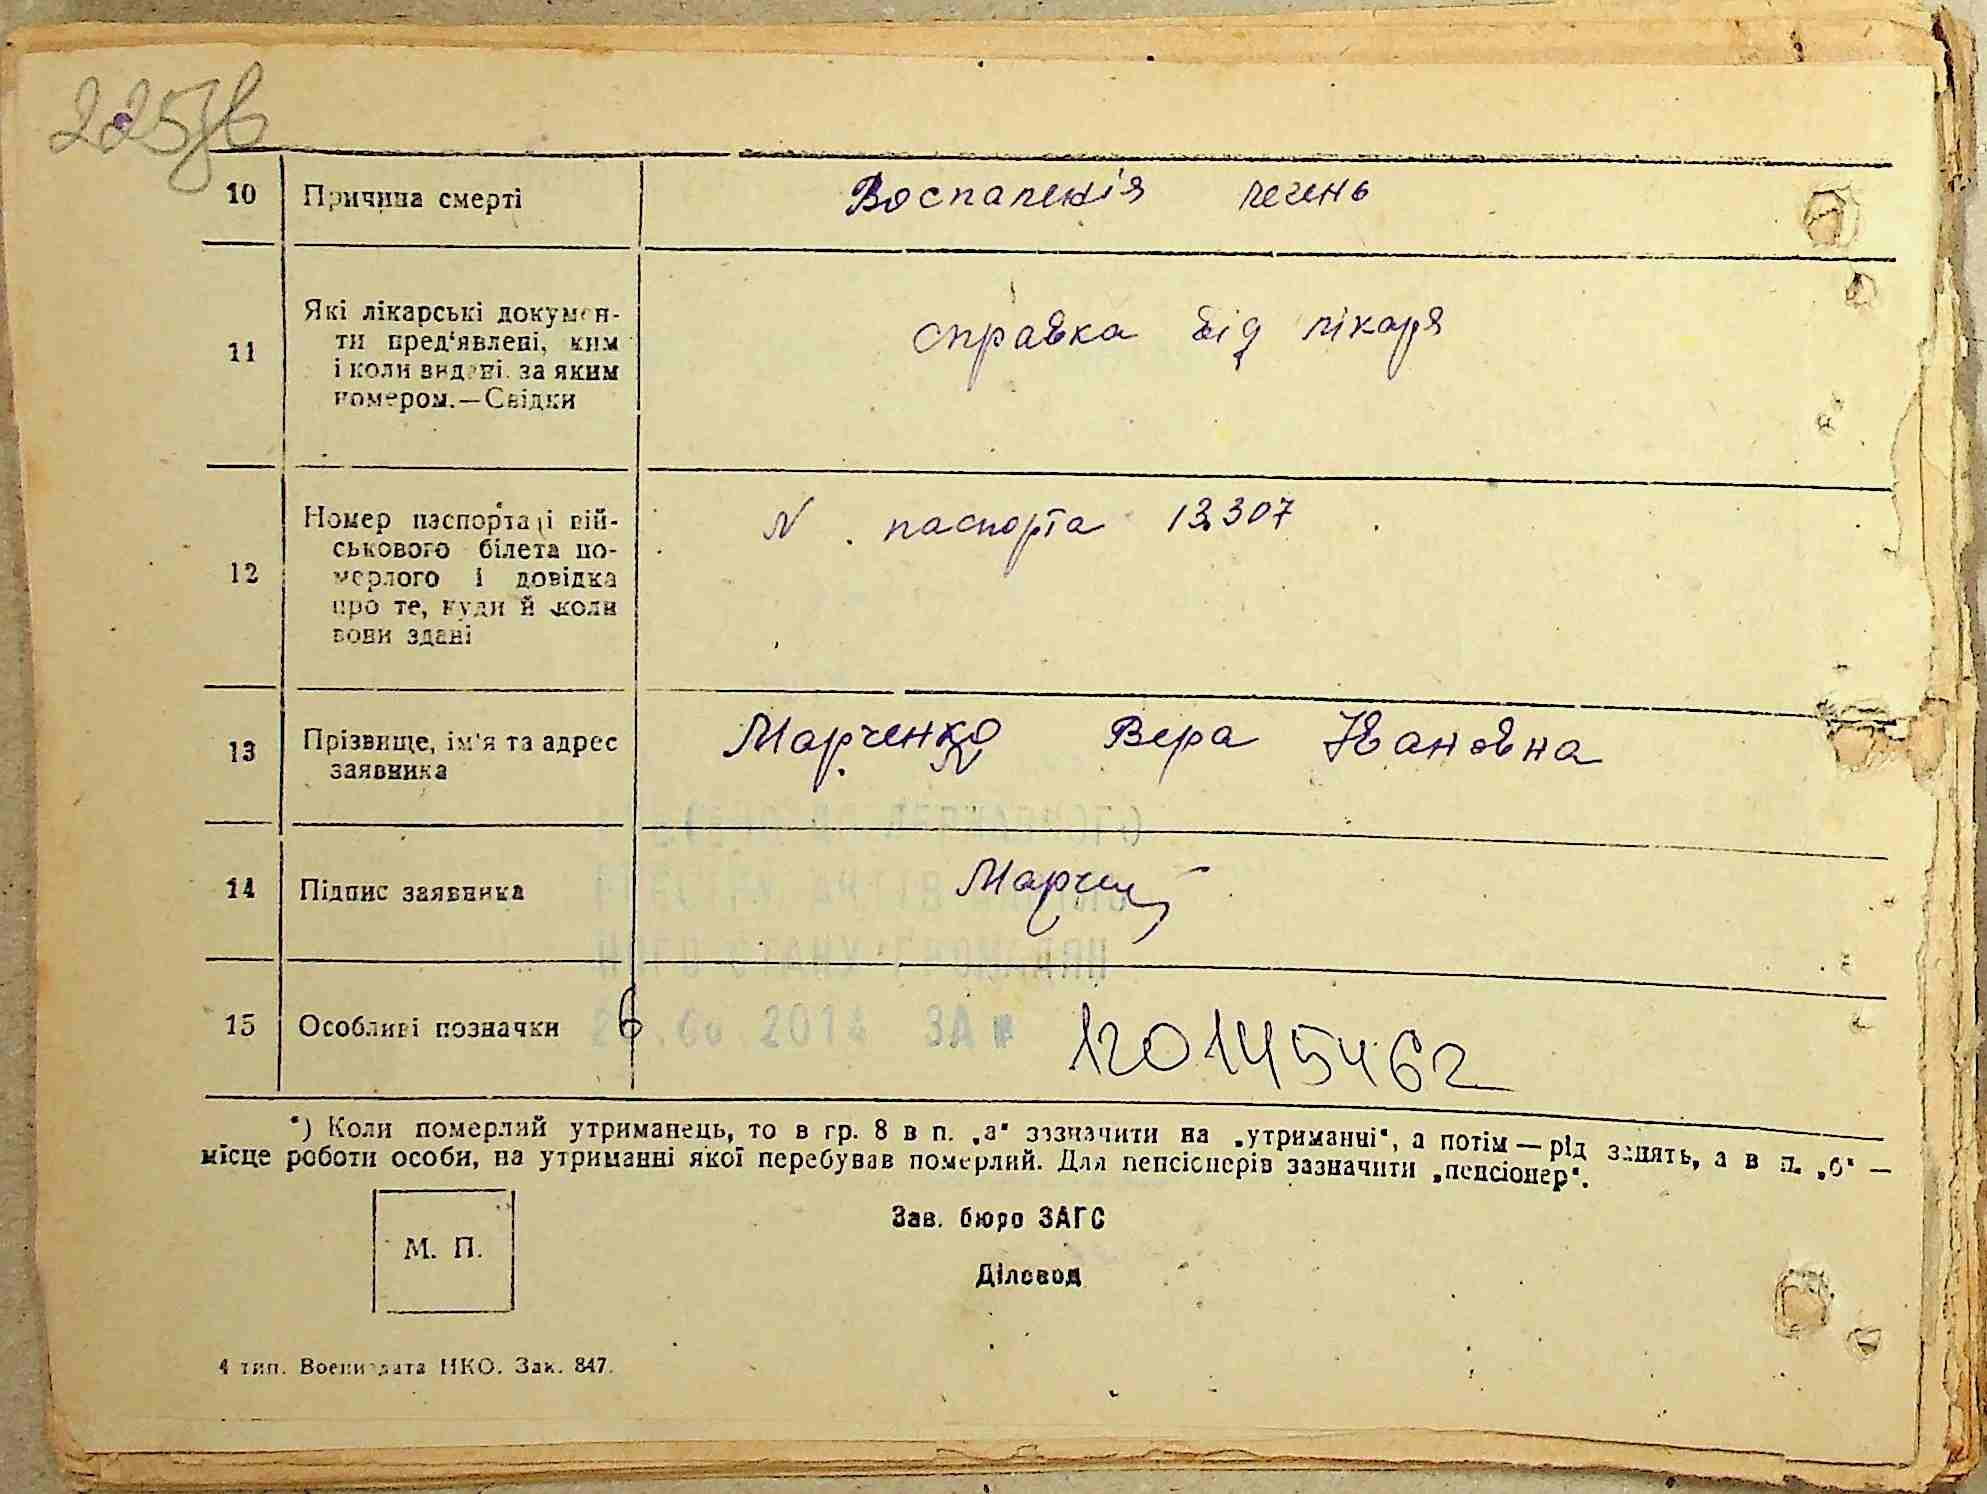 225
10 Причина смерті Воспаленія печень
11 Які лікарські докумен-
ти пред'явлені, ким
і коли видані за яким
номером.—Свідки
справка від лікаря
12 Номер паспорта і вій-
ськового білета по-
мерлого і довідка
про те, куди й коли
вони здані
N паспорта 13307
13 Прізвище, ім'я та адрес
заявника
Марченко Вера Ивановна
14 Підпис заявника
15 Особливі позначки 6 120145462
*) Коли померлий утриманець, то в гр. 8 в п. „а“ зазначити на „утриманні“, а потім — рід занять, а в п. „б“ —
місце роботи особи, на утриманні якої перебував померлий. Для пенсіонерів зазначити „пенсіонер“.
Зав. бюро ЗАГС
М. П.
Діловод
4 тип. Воениздата НКО. Зак. 847.